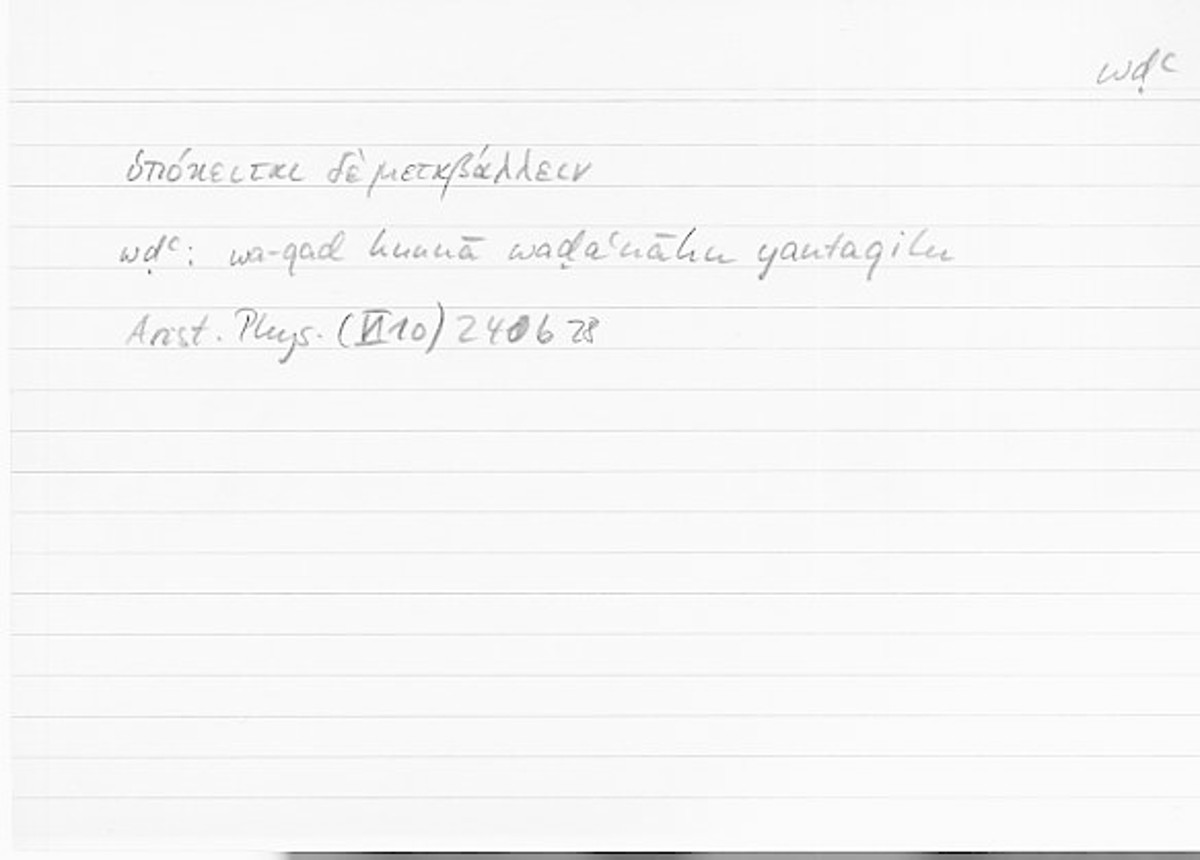 wḍʿ
ὑπόκειται δὲ μεταβάλλειν
wḍʿ: wa-qad kunnā waḍaʿnāhu yantaqilu
Arist. Phys. (VI 10) 240b28